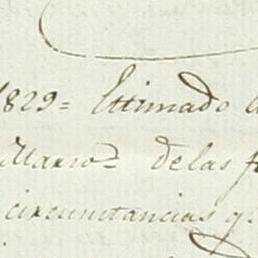 1829= Estimado
Mario= de las
circunstancias q.